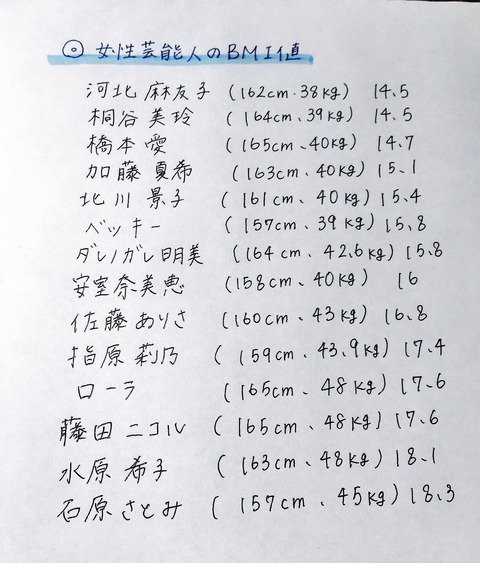 ◎ 女性芸能人のBMI値
河北 麻友子 (162cm.38kg) 14.5
桐谷 美玲 (164cm、39kg) 14.5
橋本 愛 (165cm、40kg) 14.7
加藤 夏希 (163cm、40kg) 15.1
北川 景子 (161cm、40kg) 15.4
ベッキー (157cm、39kg) 15.8
ダレノガレ明美 (164cm、42.6kg) 15.8
安室奈美恵 (158cm、40kg) 16
佐藤ありさ (160cm、43kg) 16.8
指原莉乃 (159cm、43.9kg) 17.4
ローラ (165cm、48kg) 17.6
藤田ニコル (165cm、48kg) 17.6
水原 希子 (163cm、48kg) 18.1
石原さとみ (157cm、45kg) 18.3